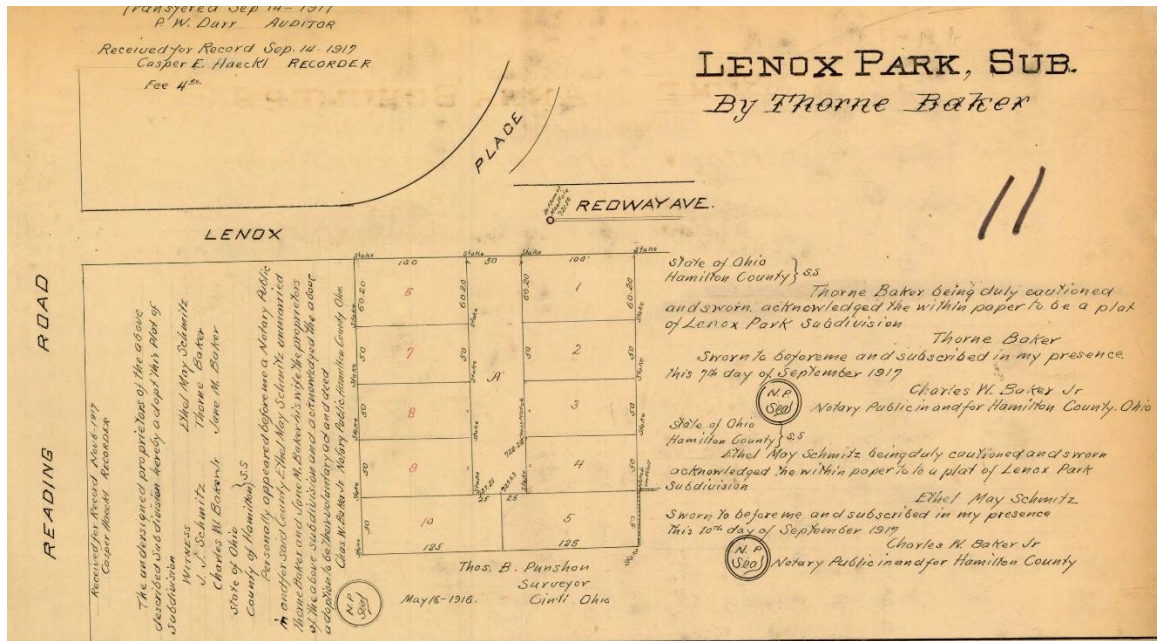 Transfered Sep 14-1917
P. W. Darr AUDITOR
Received for Record Sep. 14-1917
Casper E. Haeckl RECORDER
Fee 4
LENOX PARK, SUB.
By Thorne Baker
11
PLACE
REDWAY AVE.
LENOX
READING ROAD
Received for Record Nov. 6-1917
Casper Haeckl RECORDER
The undersigned proprietors of the above
described Subdivision hereby adopt this Plat of
Subdivision
WITNESS
J. J. Schmitz Ethel May Schmitz
Charles W. Baker Jr Thorne Baker
Jane M. Baker
State of Ohio
County of Hamilton } S.S
Personally appeared before me a Notary Public
in and for said County, Ethel May Schmitz unmarried
Thorne Baker and Jane M. Baker his wife the proprietors
of the above subdivision and acknowledged the above
adoption to be their voluntary act and deed
Chas W. Baker Jr. Notary Public Hamilton County Ohio
N.P Seal
Stake Stake Stake Stake
100 50 100'
60.20 6 60.20 60.20 1 60.20
50 7 50 A 2 50
50 8 3 50
50 9 4 50
25 25
50 10 5 50
125 125
Thos. B. Punshon
Surveyor
May 16-1916. Cinti. Ohio
State of Ohio
Hamilton County } S.S
Thorne Baker being duly cautioned
and sworn, acknowledged the within paper to be a plat
of Lenox Park Subdivision
Thorne Baker
Sworn to before me and subscribed in my presence
this 7th day of September 1917
Charles W. Baker Jr
N.P. Seal Notary Public in and for Hamilton County. Ohio
State of Ohio
Hamilton County } S.S
Ethel May Schmitz being duly cautioned and sworn
acknowledged the within paper to to a plat of Lenox Park
Subdivision
Ethel May Schmitz
Sworn to before me and subscribed in my presence
this 10th day of September 1917
Charles W. Baker Jr
N.P Seal Notary Public in and for Hamilton County